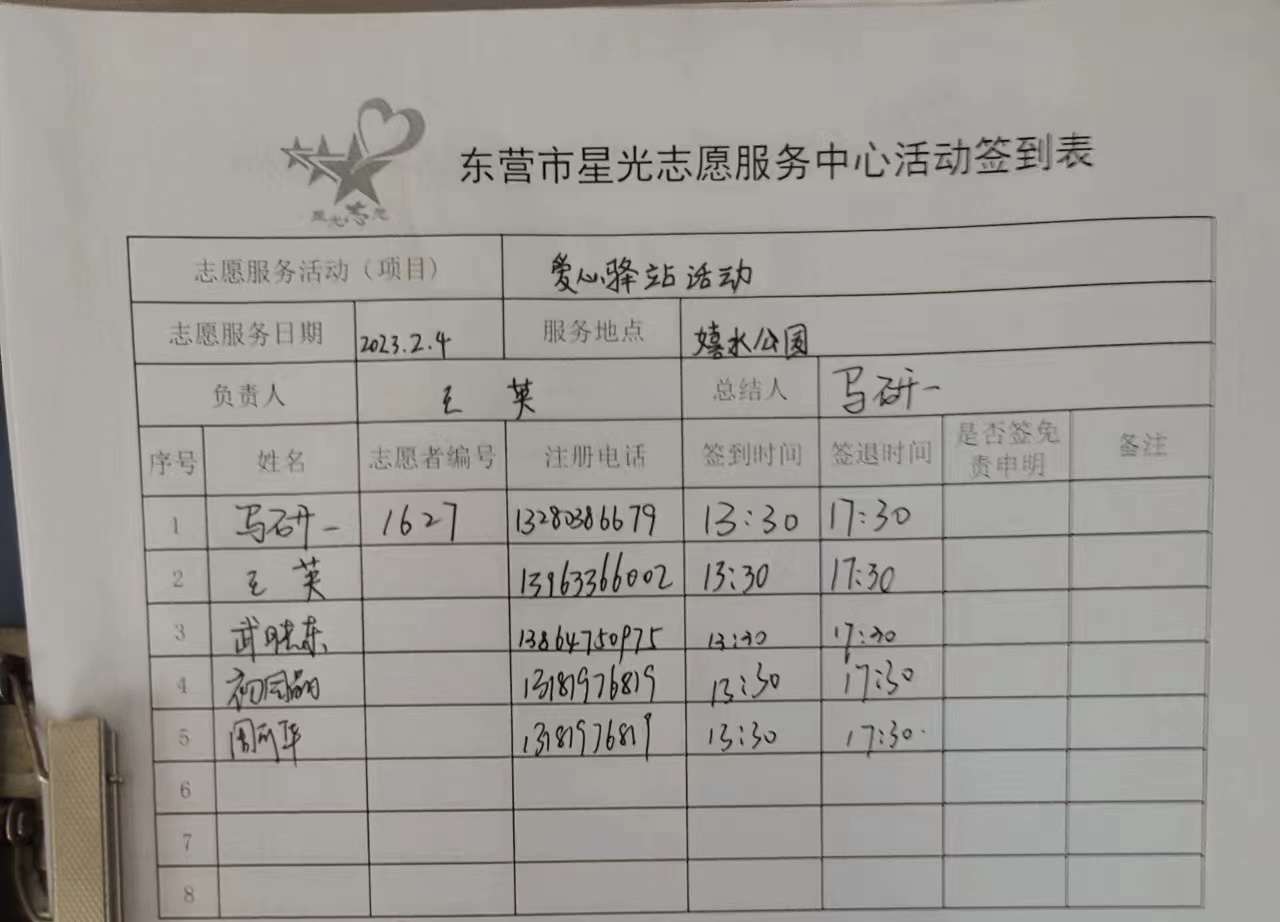 星光志愿
东营市星光志愿服务中心活动签到表
志愿服务活动（项目） 爱心驿站活动
志愿服务日期 2023.2.4 服务地点 嬉水公园
负责人 王英 总结人 马研一
序号 姓名 志愿者编号 注册电话 签到时间 签退时间 是否签免责申明 备注
1 马研一 1627 13280386679 13:30 17:30
2 王英 13963366002 13:30 17:30
3 武晓东 13864750975 13:30 17:30
4 13181976819 13:30 17:30
5 13181976819 13:30 17:30
6
7
8